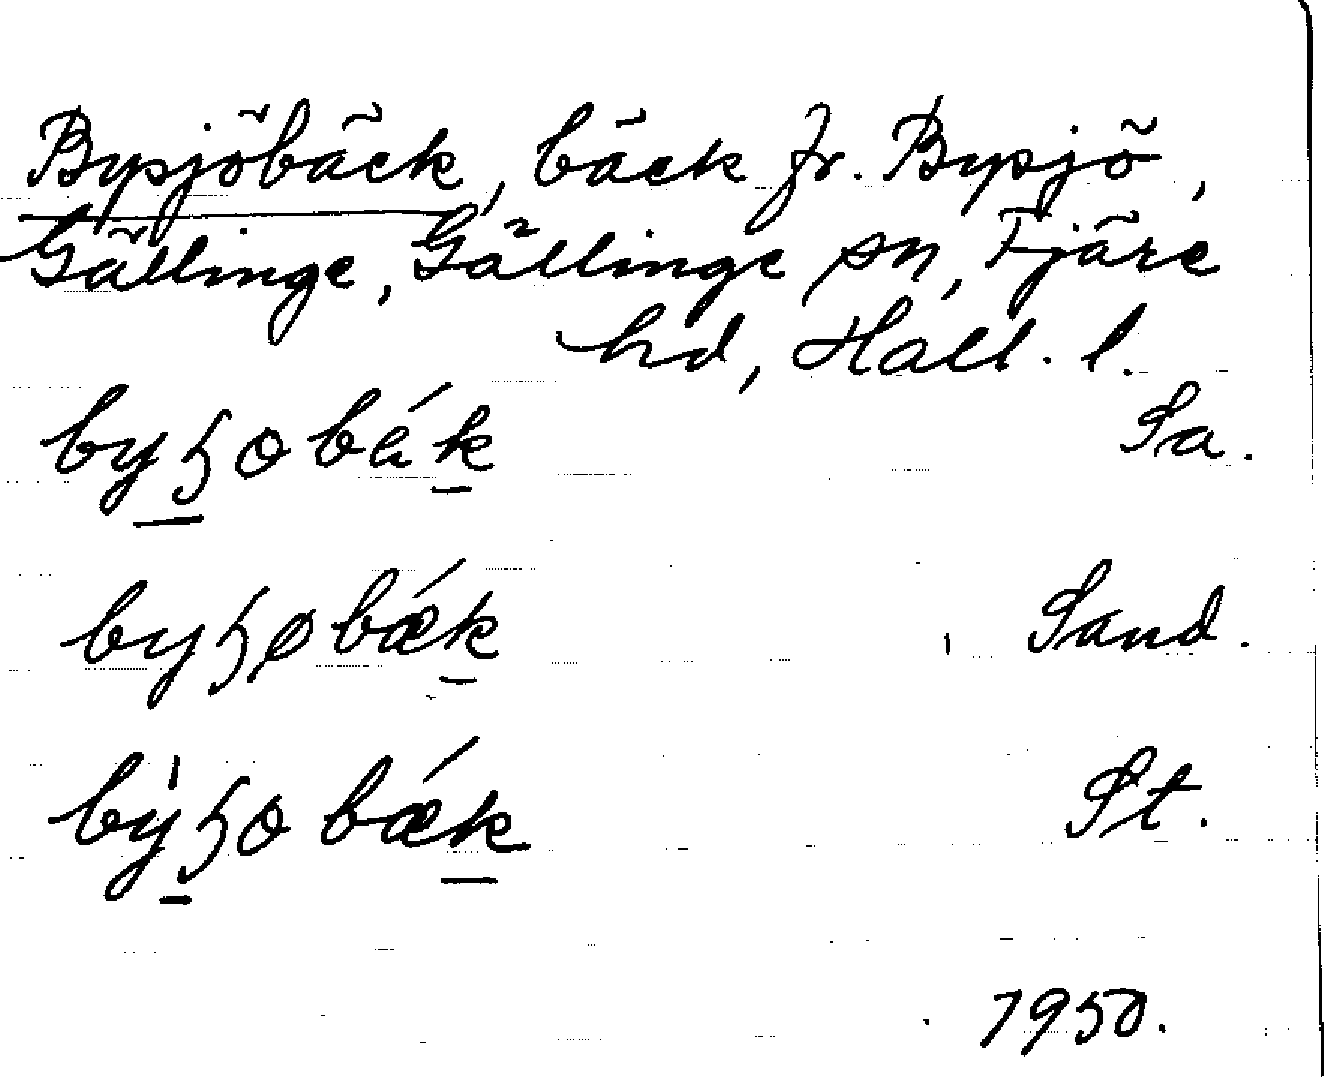 Bysjöbäck, bäck fr. Bysjö,
Gällinge, Gällinge sn, Fjäre
hd, Hall. l.
Sa.
Sand.
St.
1950.